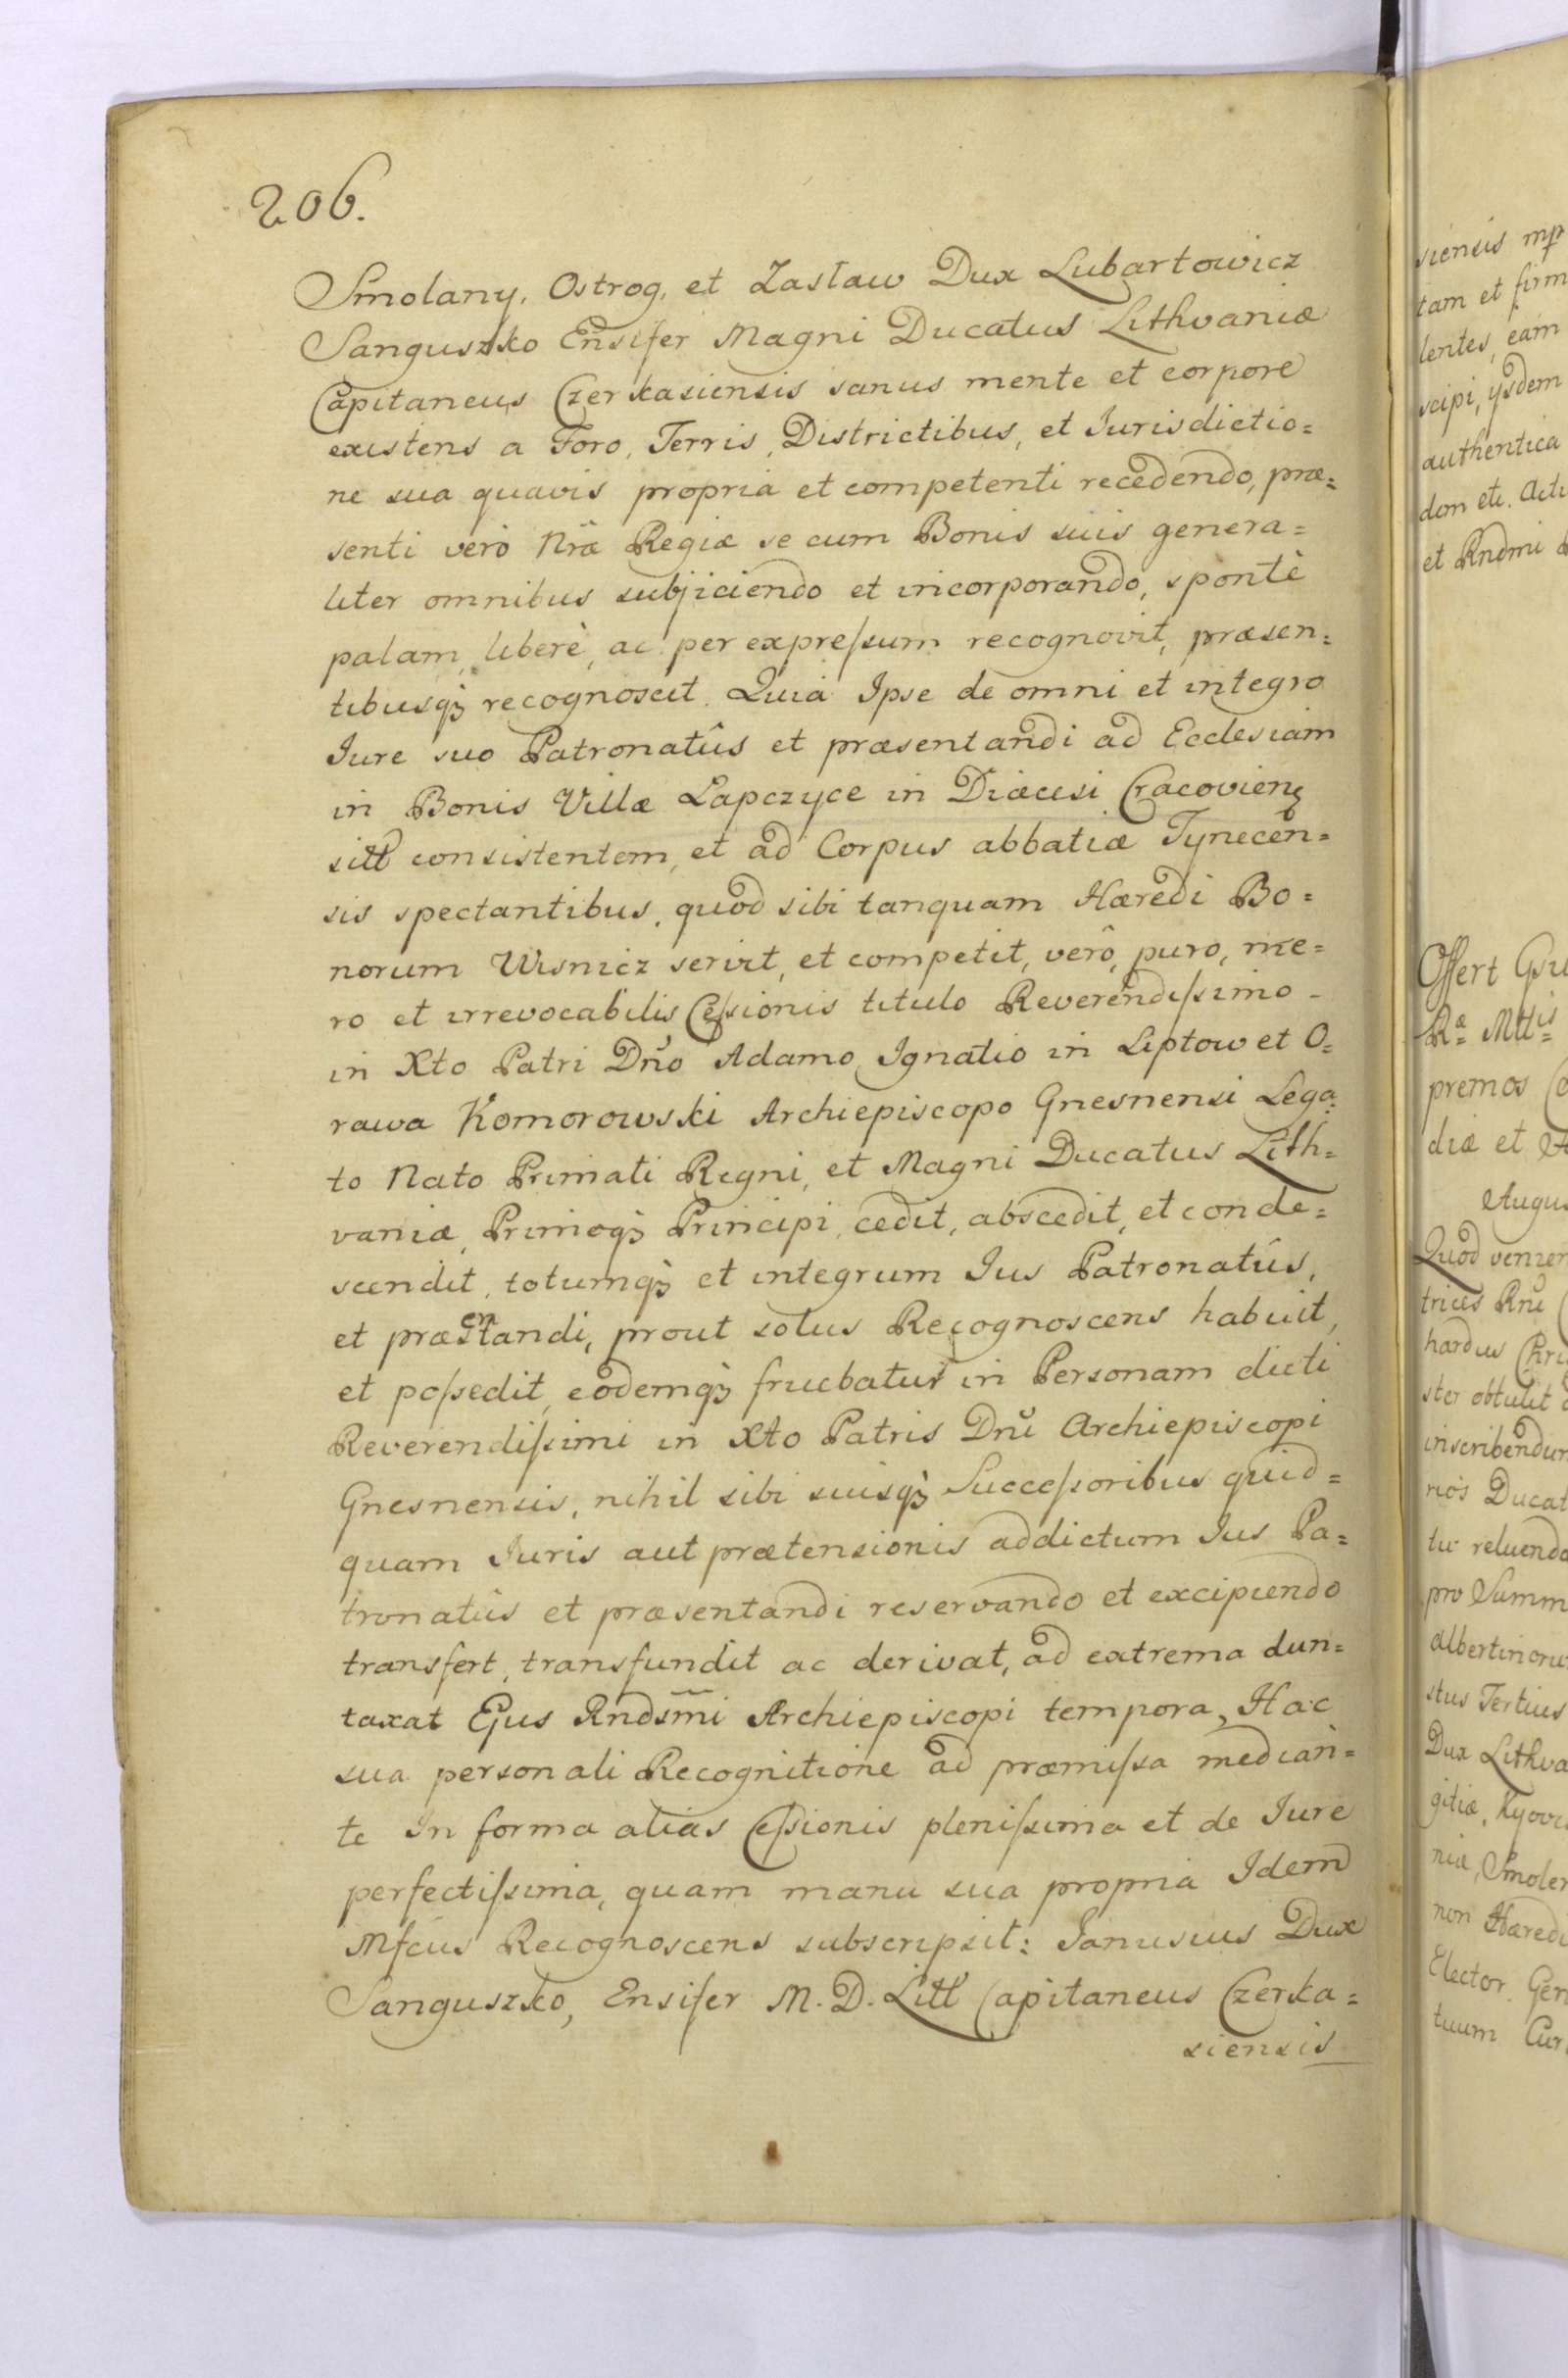 206.
Smolany, Ostrog, et Zasław Dux Lubartowicz
Sanguszko Ensifer Magni Ducatus Lithvaniæ
Capitaneus Czerkasiensis sanus mente et corpore
existens a Foro, Terris, Districtibus, et Jurisdictio=
ne sua quavis propria et competenti recedendo, præ=
senti verò Nrã Regiæ se cum Bonis suis genera=
liter omnibus subjiciendo et incorporando, spontè
palam, liberè, ac per expressum recognovit, præsen=
tibusq3 recognoscit. Quia Ipse de omni et integro
Jure suo Patronatûs et præsentandi ad Ecclesiam
in Bonis Villæ Łapczyce in Diæcesi Cracovien
sitt consistentem, et ad Corpus abbatiæ Tynecen=
sis spectantibus, quod sibi tanquam Hæredi Bo=
norum Wisnicz servit, et competit, verô, puro, me=
ro et irrevocabilis Cessionis titulo Reverendissimo
in Xto Patri Dño Adamo Ignatio in Liptow et O=
rawa Komorowski Archiepiscopo Gnesnensi Lega=
to Nato Primati Regni, et Magni Ducatus Lith=
vaniæ, Primoq3 Principi, cedit, abscedit, et conde=
scendit, totumq3 et integrum Jus Patronatûs,
et præsentandi, prout solus Recognoscens habuit,
et possedit, eodemq3 fruebatur in Personam dicti
Reverendissimi in Xto Patris Dñi Archiepiscopi
Gnesnensis, nihil sibi suisq3 Successoribus quid=
quam Juris aut prætensionis addictum Jus Pa=
tronatûs et præsentandi reservando et excipiendo
transfert, transfundit ac derivat, ad extrema dun=
taxat Ejus Rndsmi Archiepiscopi tempora, Hac
sua personali Recognitione ad præmissa median=
te In forma alias Cessionis plenissima et de Jure
perfectissima, quam manu sua propria Idem
Mfcus Recognoscens subscripsit: Janusius Dux
Sanguszko, Ensifer M. D. Litt Capitaneus Czerka=
siensis
siensis mp
tam et firm
lentes, eam
scipi, ysdem
authentica
don etc. Actu
et Rndmi
Offert
Ræ Mttis
premos
diæ et
Augus
Quod venien
trices
hardus Chri
ster obtulit
inscribendum
rios Ducat
tu reluendo
pro Summ
albertinoru
stus Tertius
Dux Lithva
gitiæ, Kyovi
niæ, Smolen
non Hæredi
Elector Gen
tuum Cur